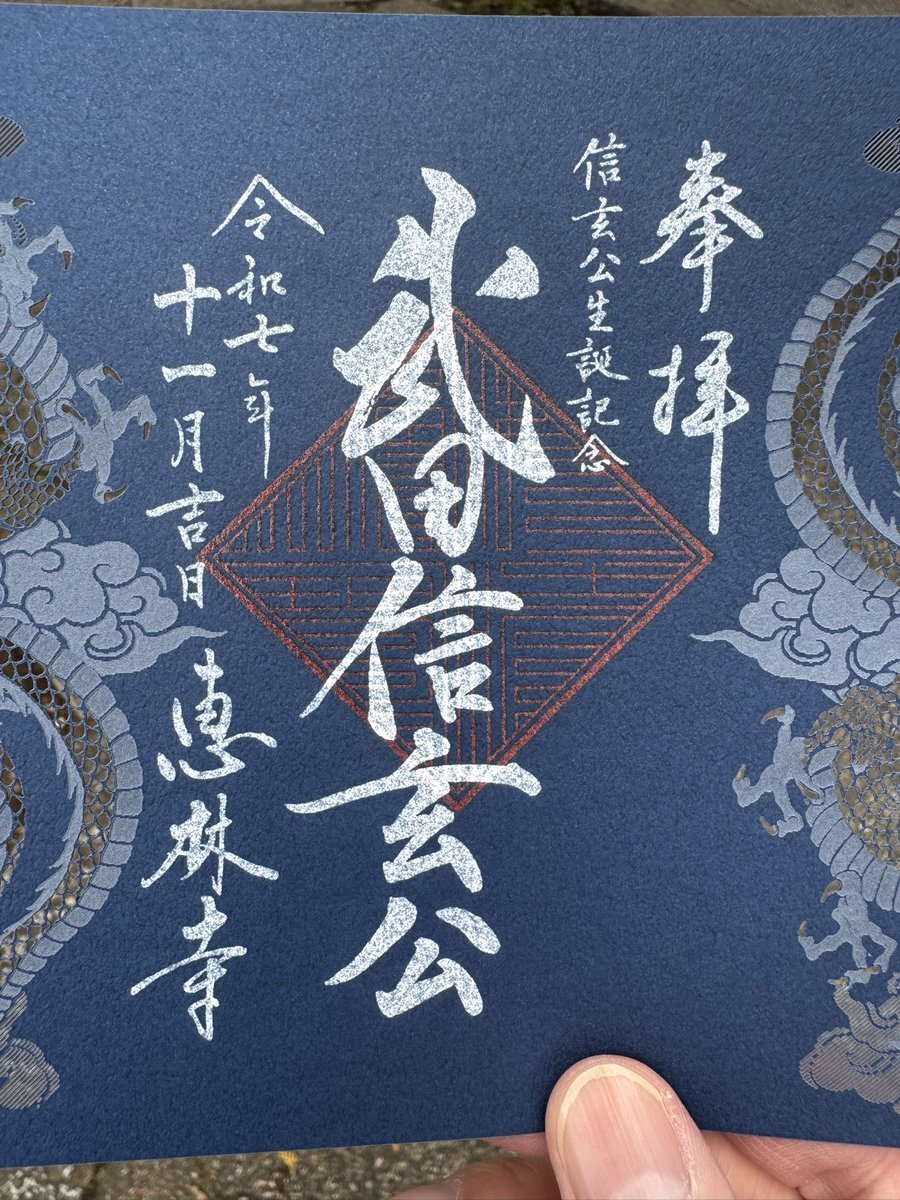 奉拝
信玄公生誕記念
武田信玄公
令和七年
十一月吉日
恵林寺